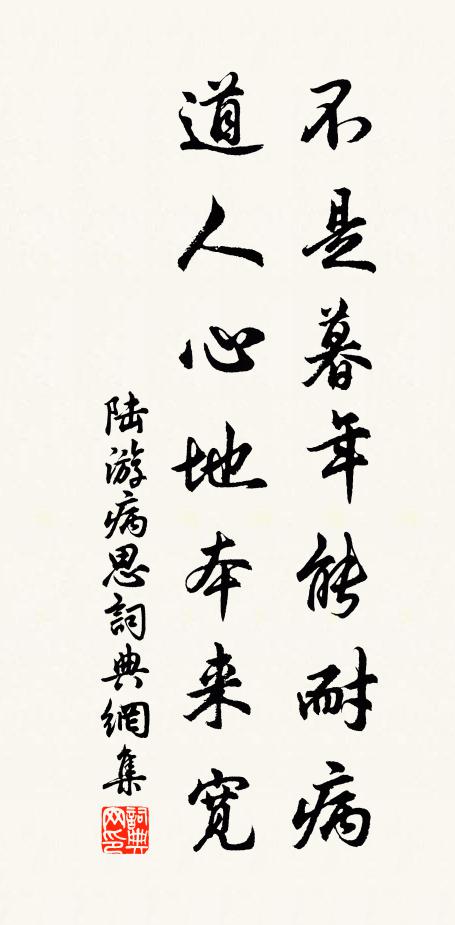 不是暮年能耐病
道人心地本来寬
陆游病思詞典網集
詞典网印